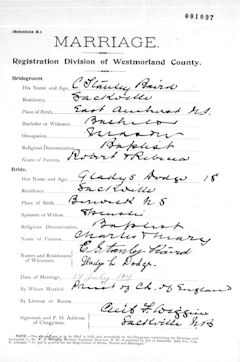 001097
(Schedule B.)
MARRIAGE.
Registration Division of Westmorland County.
Bridegroom.
His Name and Age, C Stanley Baird
Residence, Sackville
Place of Birth, East Amherst N.S.
Bachelor or Widower, Bachelor
Occupation, Mason
Religious Denomination, Baptist
Name of Parents, Robert & Rebecca
Bride.
Her Name and Age, Gladys Dodge 18
Residence, Sackville
Place of Birth, Berwick N S
Spinster or Widow, Spinster
Religious Denomination, Baptist
Name of Parents, Charles & Mary
Names and Residences of Witnesses, C. Stanley Baird
Gladys L. Dodge.
Date of Marriage, 19 July 1911
By Whom Married, Priest of Ch. of England
By License or Banns,
Signature and P. O. Address of Clergyman, F. Wiggins
Sackville N B